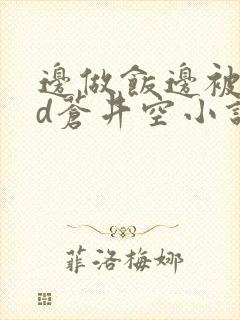 邊做飯邊被
d蒼井空小說
菲洛梅娜